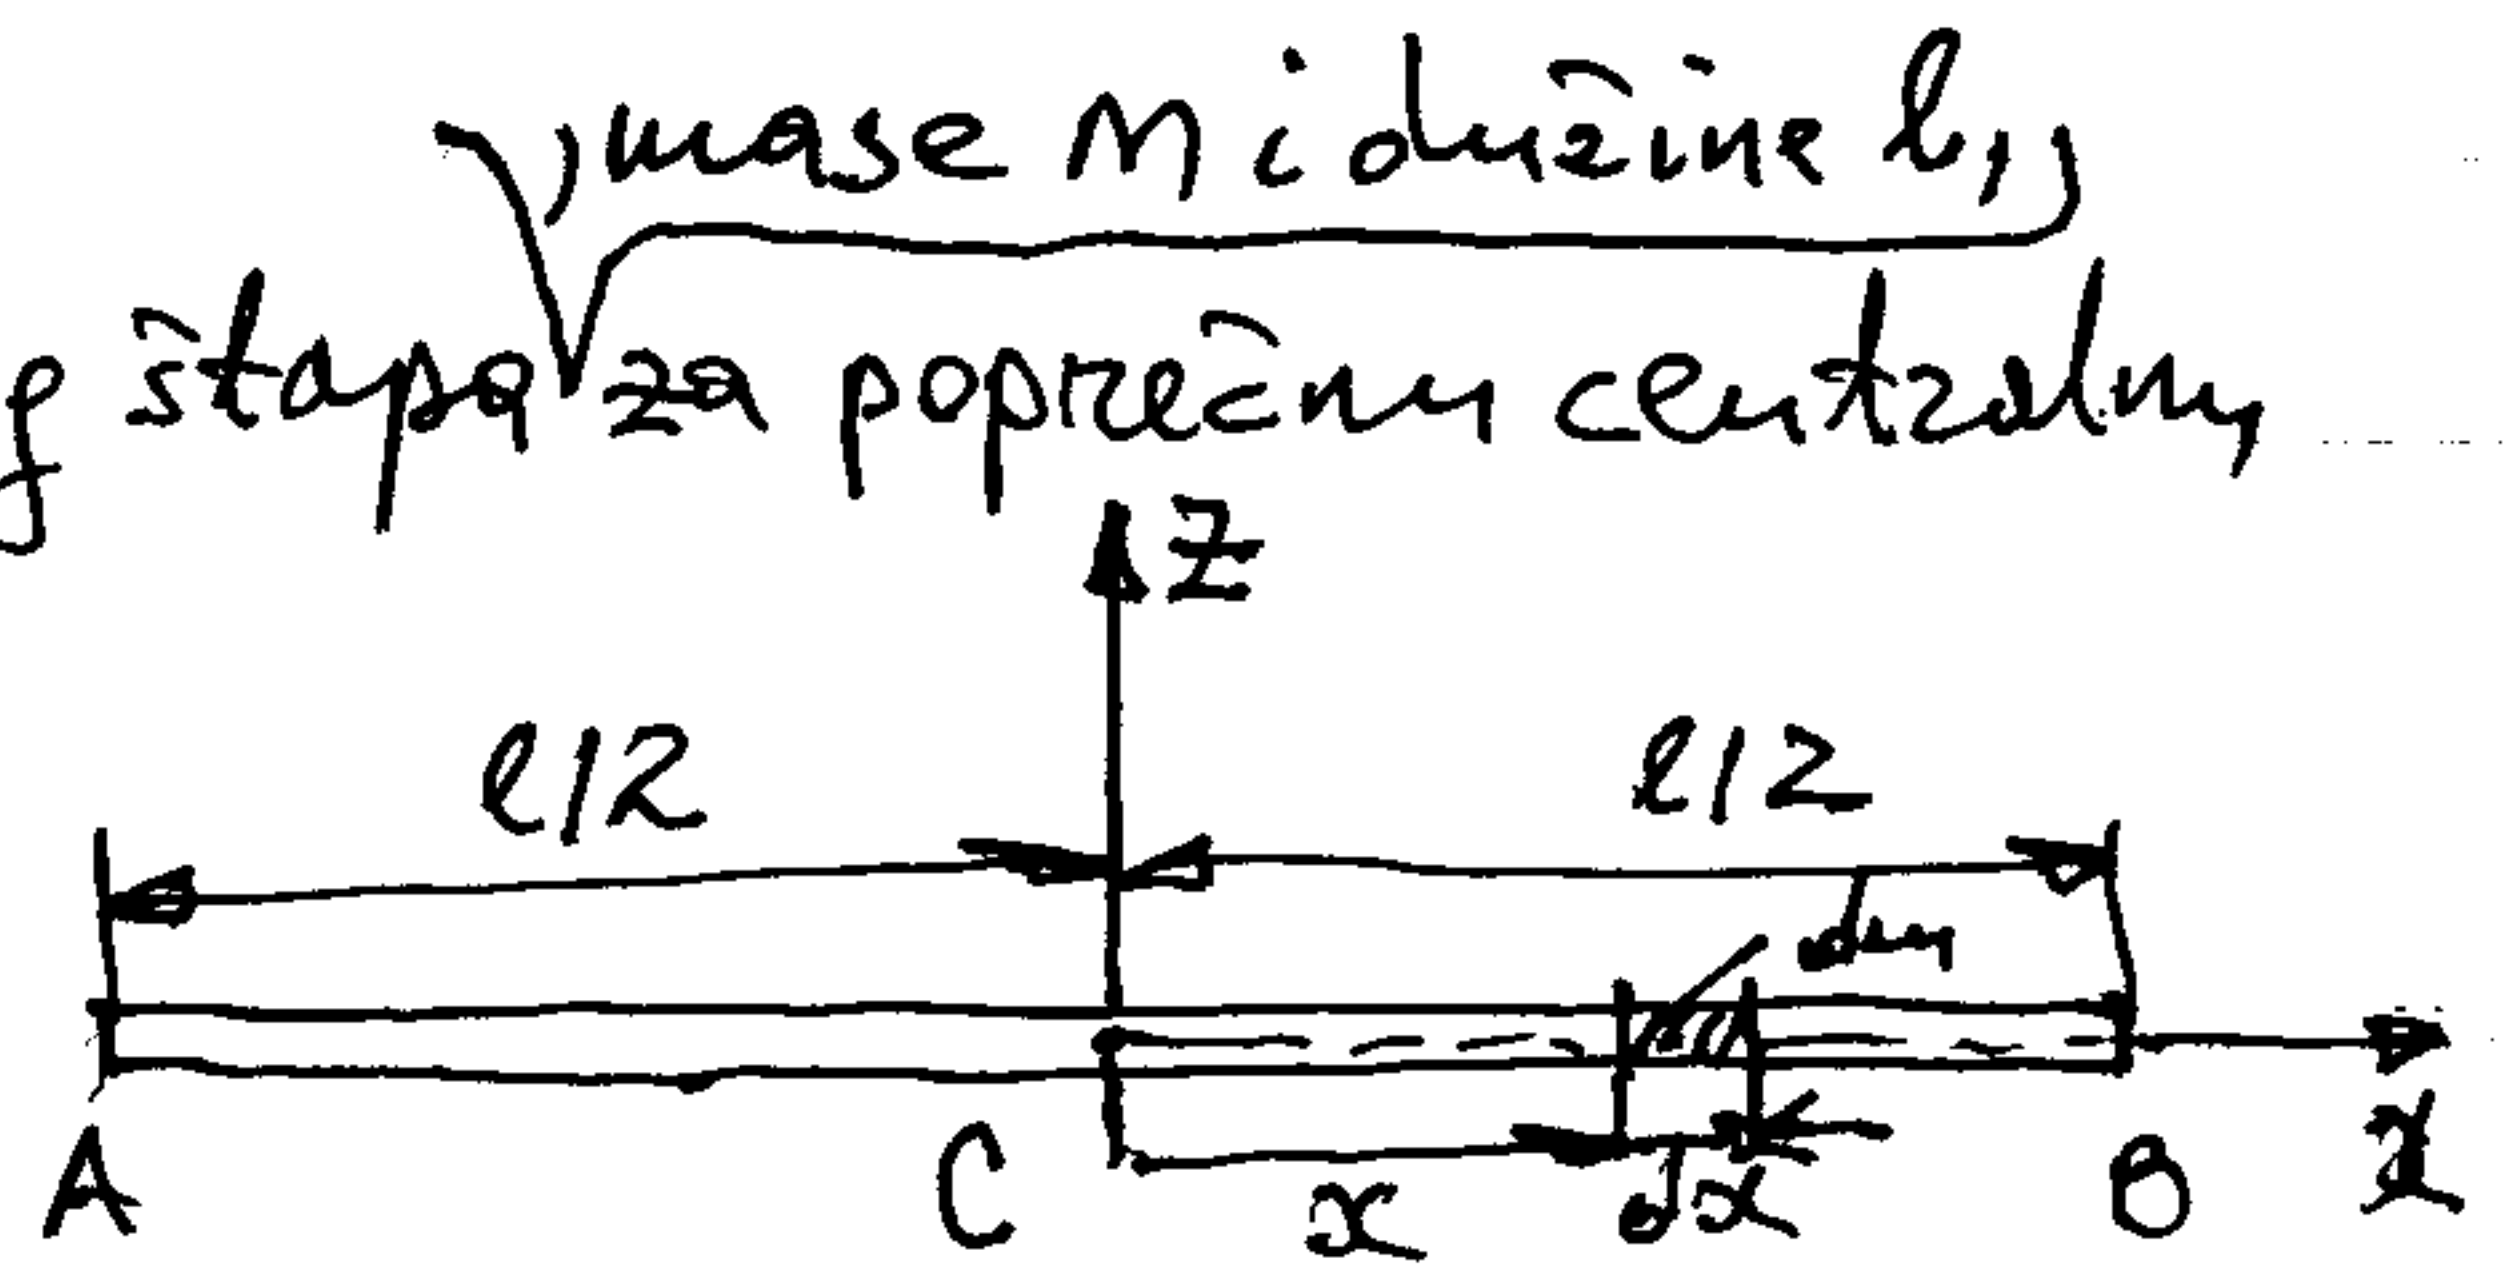 , mase M i dužine l,
g štapa za poprečnu centralnu
z
l/2 l/2
dm
A C x dx B x